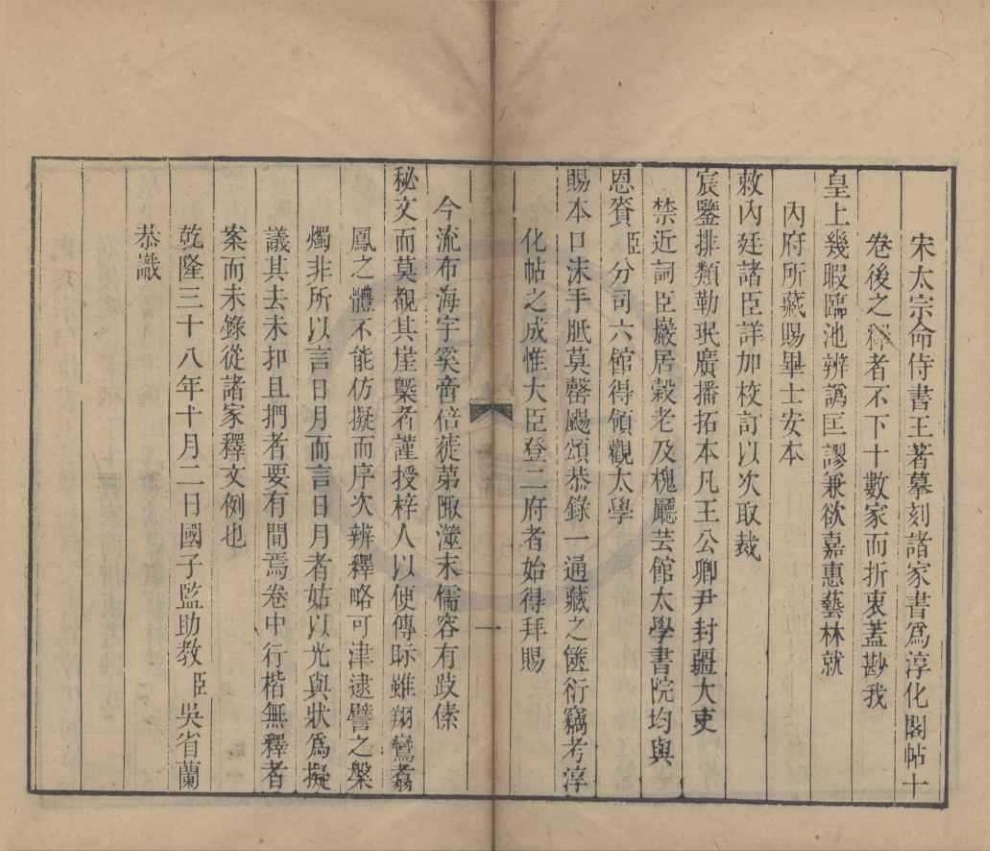 宋太宗命侍書王著摹刻諸家書爲淳化閣帖十
卷後之釋者不下十數家而折衷蓋尠我
皇上幾暇臨池辨譌匡謬兼欲嘉惠藝林就
內府所藏賜畢士安本
敕內廷諸臣詳加校訂以次取裁
宸鑒排類勒珉廣播拓本凡王公卿尹封疆大吏
禁近詞臣巖居穀老及槐廳芸館太學書院均與
恩賚臣分司六館得領觀太學
賜本口沫手胝莫罄颺頌恭錄一通藏之篋衍竊考淳
化帖之成惟大臣登二府者始得拜賜
一
今流布海宇奚啻倍蓰第陬澨末儒容有跂傃
秘文而莫覩其崖槩者謹授梓人以便傳眎雖翔鸞翥
鳳之體不能仿擬而序次辨釋略可津逮譬之槃
燭非所以言日月而言日月者姑以光與狀爲擬
議其去未扣且捫者要有間焉卷中行楷無釋者
案而未錄從諸家釋文例也
乾隆三十八年十月二日國子監助教臣吳省蘭
恭識